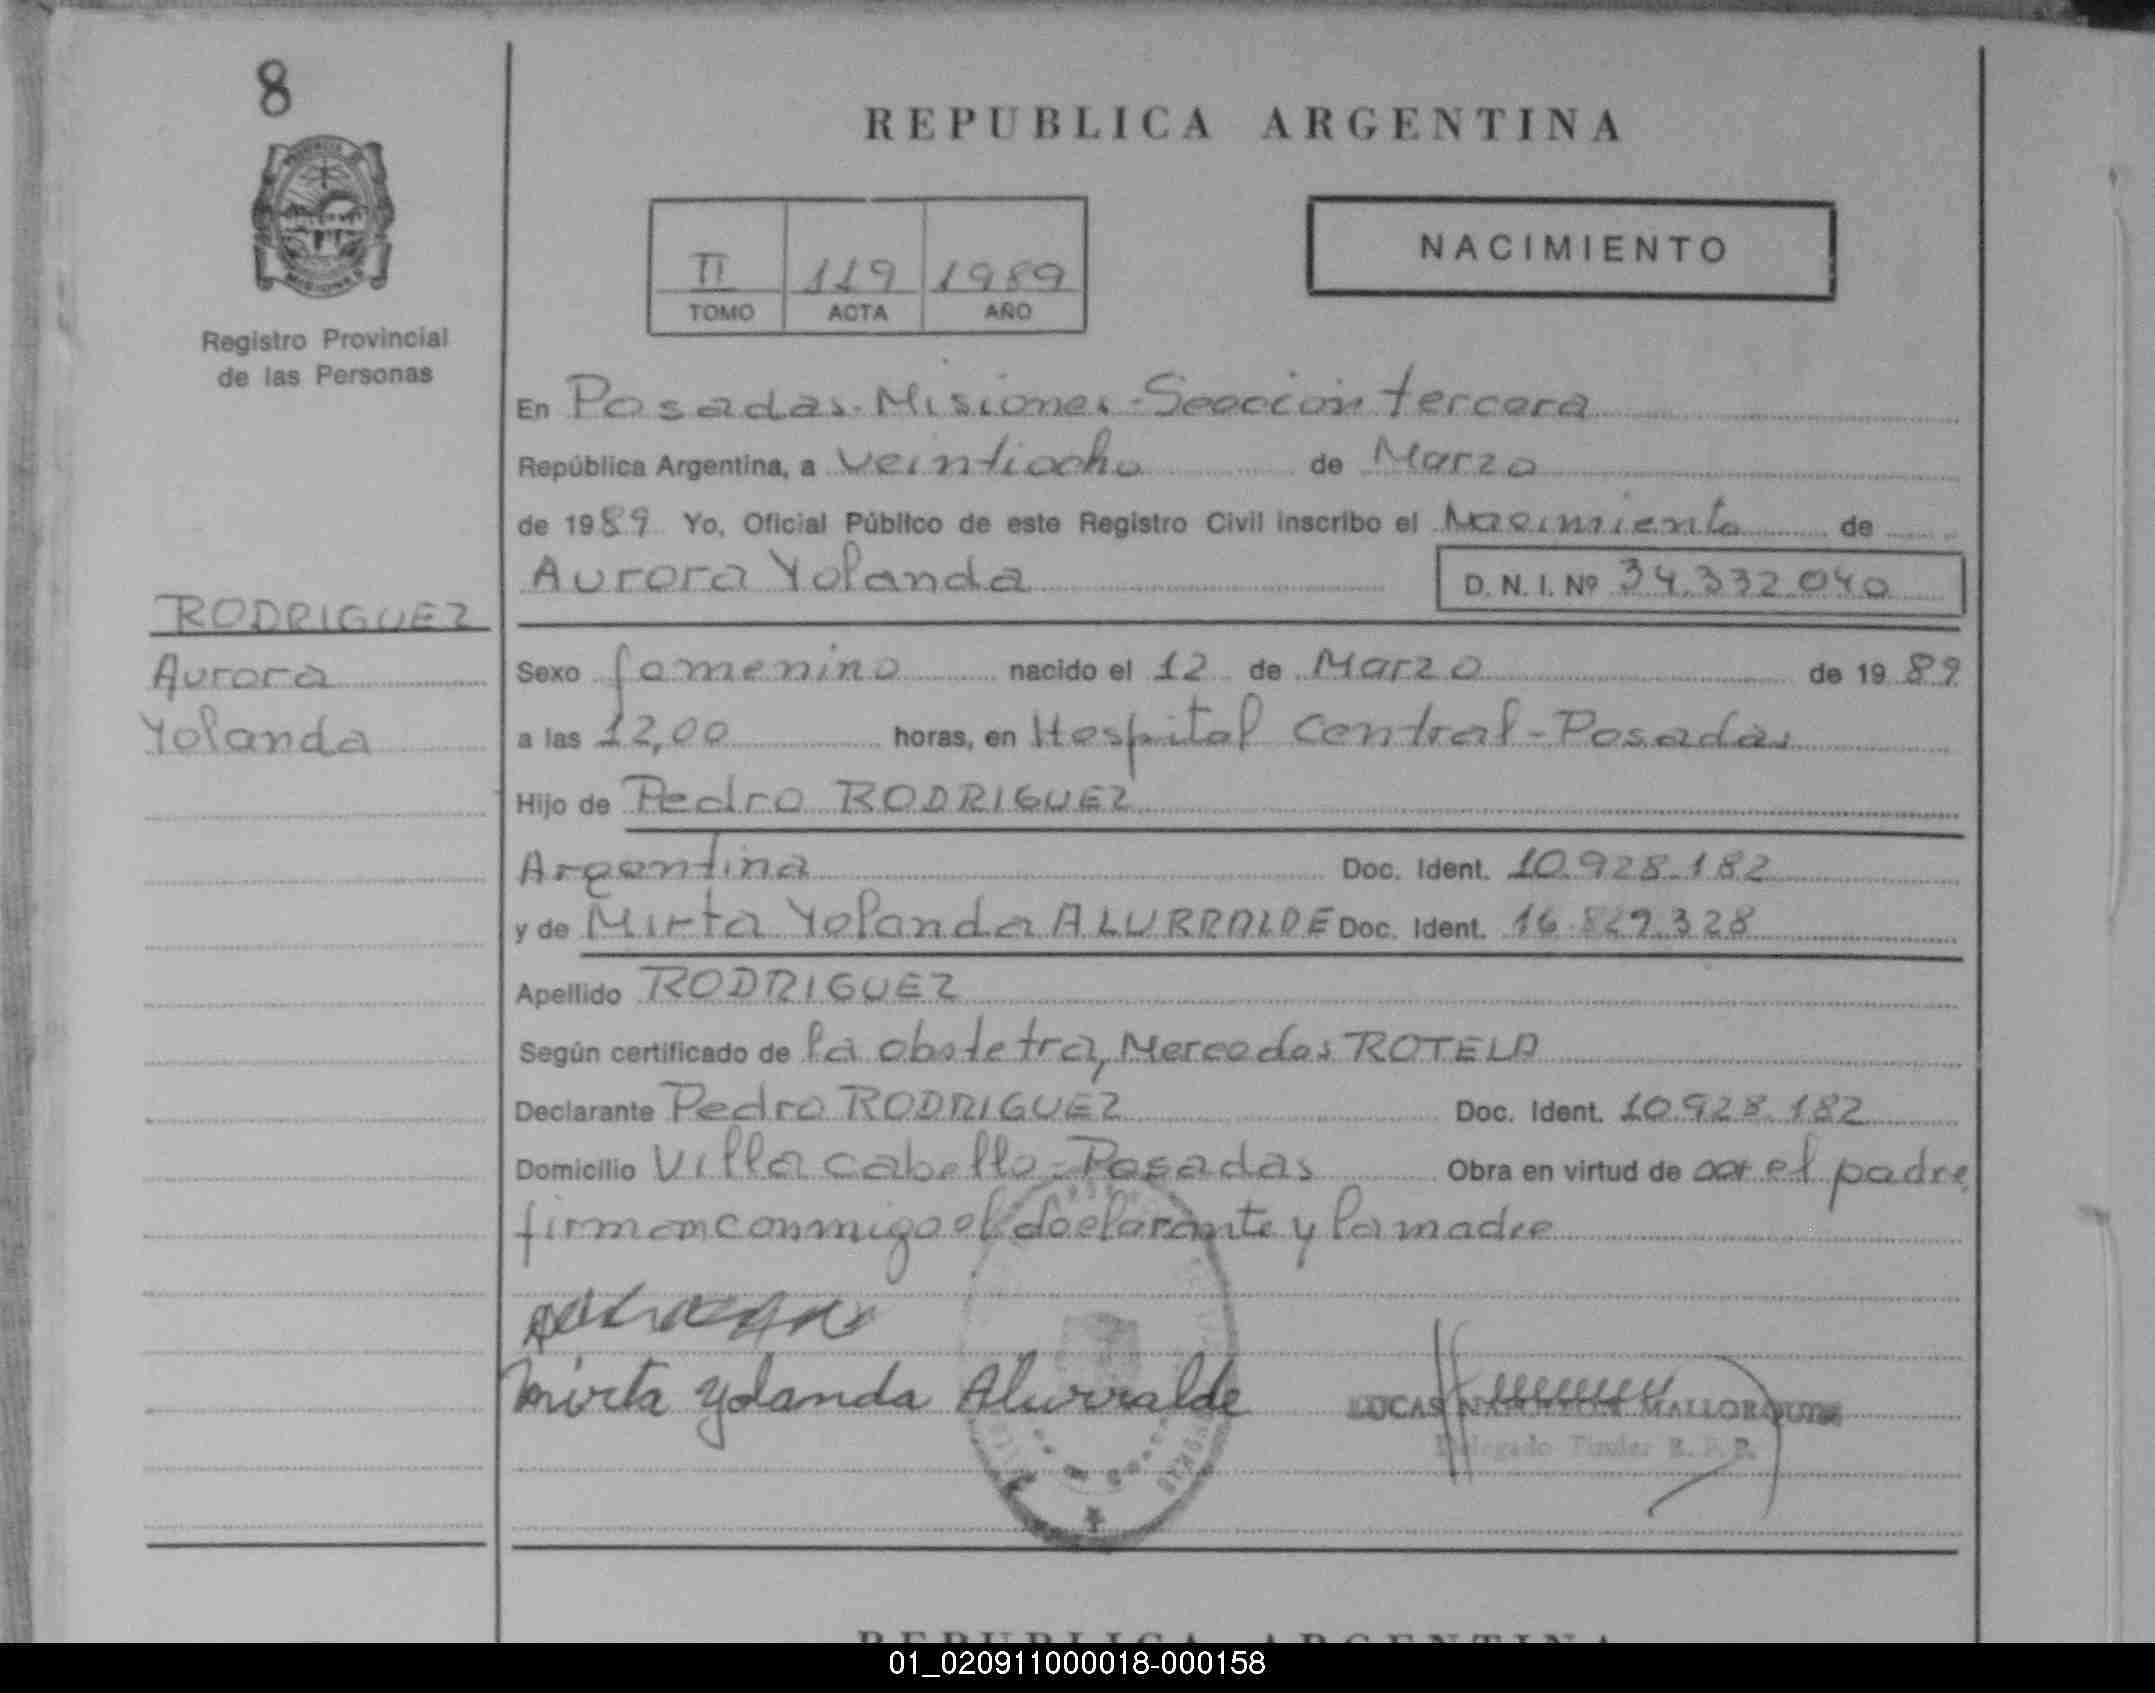 8
REPUBLICA ARGENTINA
NACIMIENTO
II 119 1989
TOMO ACTA AÑO
Registro Provincial
de las Personas
En Posadas. Misiones - Sección tercera
República Argentina, a veintiocho de Marzo
de 1989 Yo, Oficial Público de este Registro Civil inscribo el Nacimiento de
Aurora Yolanda D. N. I. Nº 34.332.040
RODRIGUEZ
Aurora
Yolanda
Sexo femenino nacido el 12 de Marzo de 1989
a las 12,00 horas, en Hospital Central - Posadas
Hijo de Pedro RODRIGUEZ
Argentina Doc. Ident. 10.928.182
y de Mirta Yolanda ALURRALDE Doc. Ident. 16.829.328
Apellido RODRIGUEZ
Según certificado de la obstetra, Mercedes ROTELA
Declarante Pedro RODRIGUEZ Doc. Ident. 10.928.182
Domicilio Villa Cabello - Posadas Obra en virtud de ser el padre,
firman conmigo el declarante y la madre
Mirta Yolanda Alurralde
LUCAS MALLORQUIN
Delegado Titular R. P. P.
REPUBLICA ARGENTINA
01_020911000018-000158